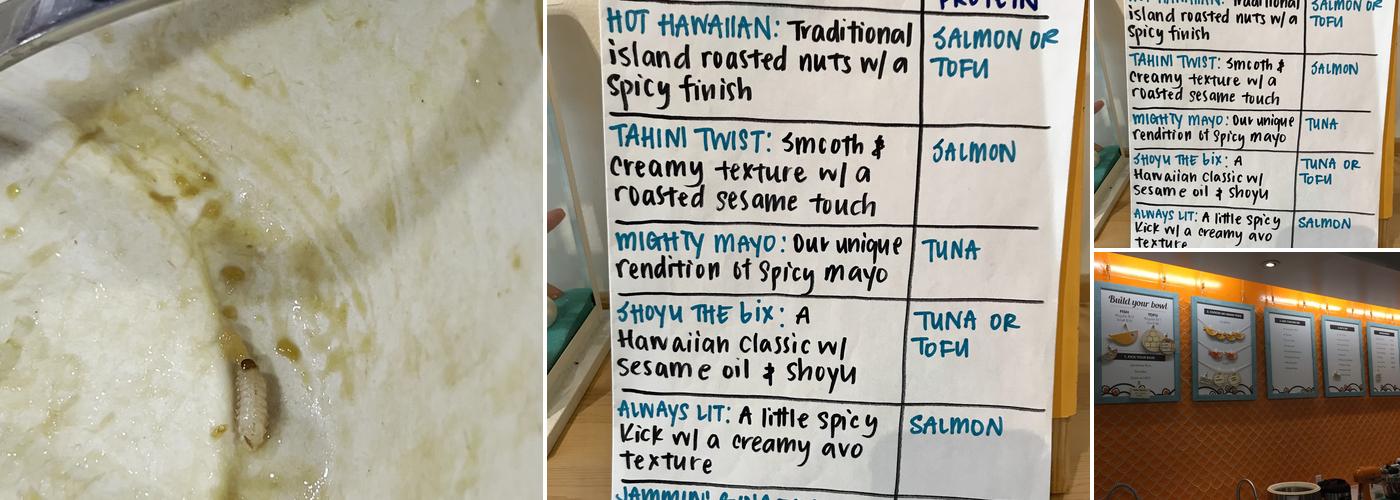 PROTEIN
HOT HAWAIIAN: Traditional
island roasted nuts w/ a
spicy finish
SALMON OR
TOFU
TAHINI TWIST: Smooth &
Creamy texture w/ a
roasted sesame touch
SALMON
MIGHTY MAYO: Our unique
rendition of Spicy mayo
TUNA
SHOYU THE bix: A
Hawaiian Classic w/
sesame oil & Shoyu
TUNA OR
TOFU
ALWAYS LIT: A little Spicy
Kick w/ a creamy avo
texture
SALMON
HOT HAWAIIAN: Traditional
island roasted nuts w/ a
Spicy finish
SALMON OR
TOFU
TAHINI TWIST: Smooth &
Creamy texture w/ a
roasted sesame touch
SALMON
MIGHTY MAYO: Our unique
rendition of Spicy mayo
TUNA
SHOYU THE bix: A
Hawaiian Classic w/
sesame oil & Shoyu
TUNA OR
TOFU
ALWAYS LIT: A little Spicy
Kick w/ a creamy avo
texture
SALMON
Build your bowl
FISH
TOFU